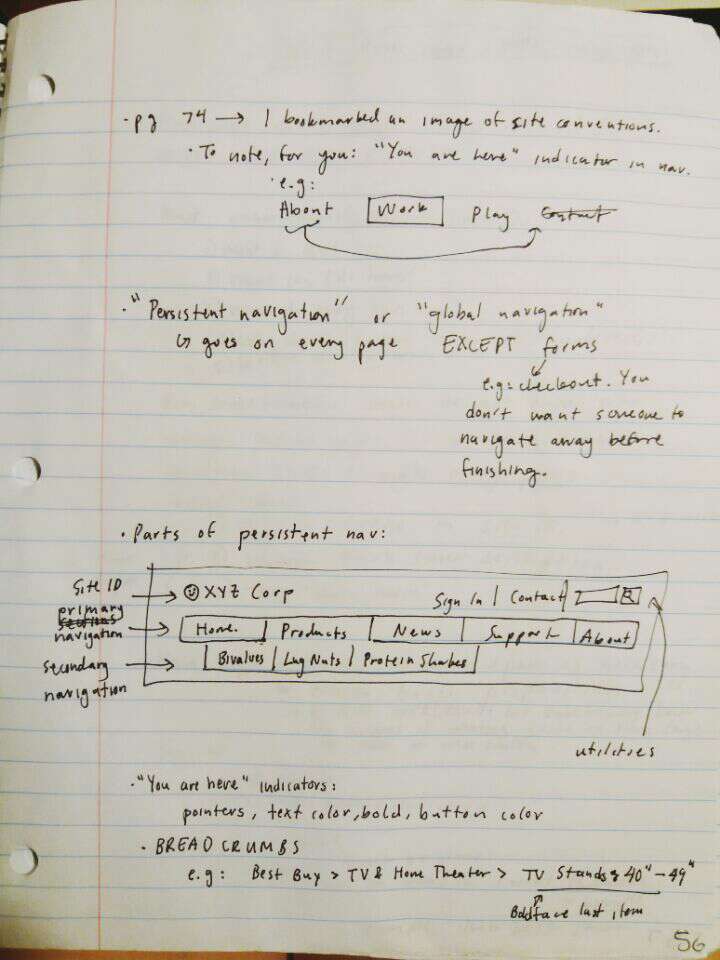 · pg 74 → I bookmarked an image of site conventions.
· To note, for you: "You are here" indicator in nav.
· e.g:
About Work Play Contact
· "Persistent navigation" or "global navigation"
↳ goes on every page EXCEPT forms
e.g: checkout. You
don't want someone to
navigate away before
finishing.
· Parts of persistent nav:
Site ID → XYZ Corp Sign In | Contact
primary
sections
navigation → Home Products News Support About
secondary
navigation → Bivalves Lug Nuts Protein Shakes
utilities
· "You are here" indicators:
pointers, text color, bold, button color
· BREADCRUMBS
e.g: Best Buy > TV & Home Theater > TV Stands 40" - 49"
Boldface last item
56